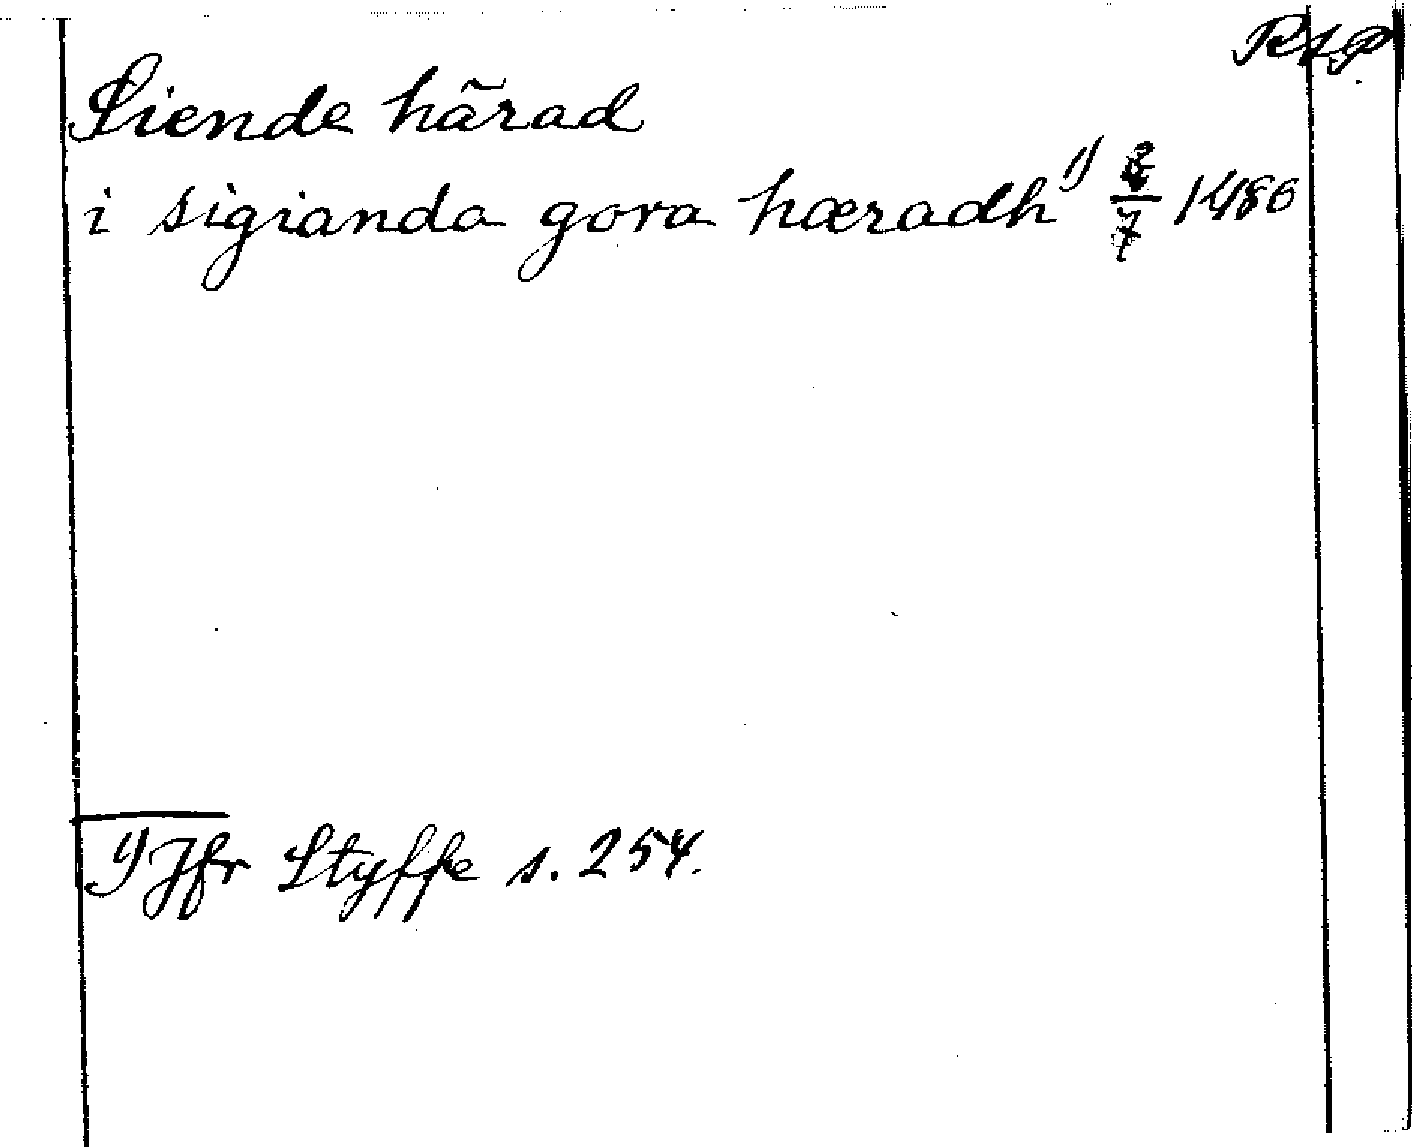 RAP.
Siende härad
i sigianda gora hæradh 1) 8/7 1486
1) Jfr Styffe s. 254.